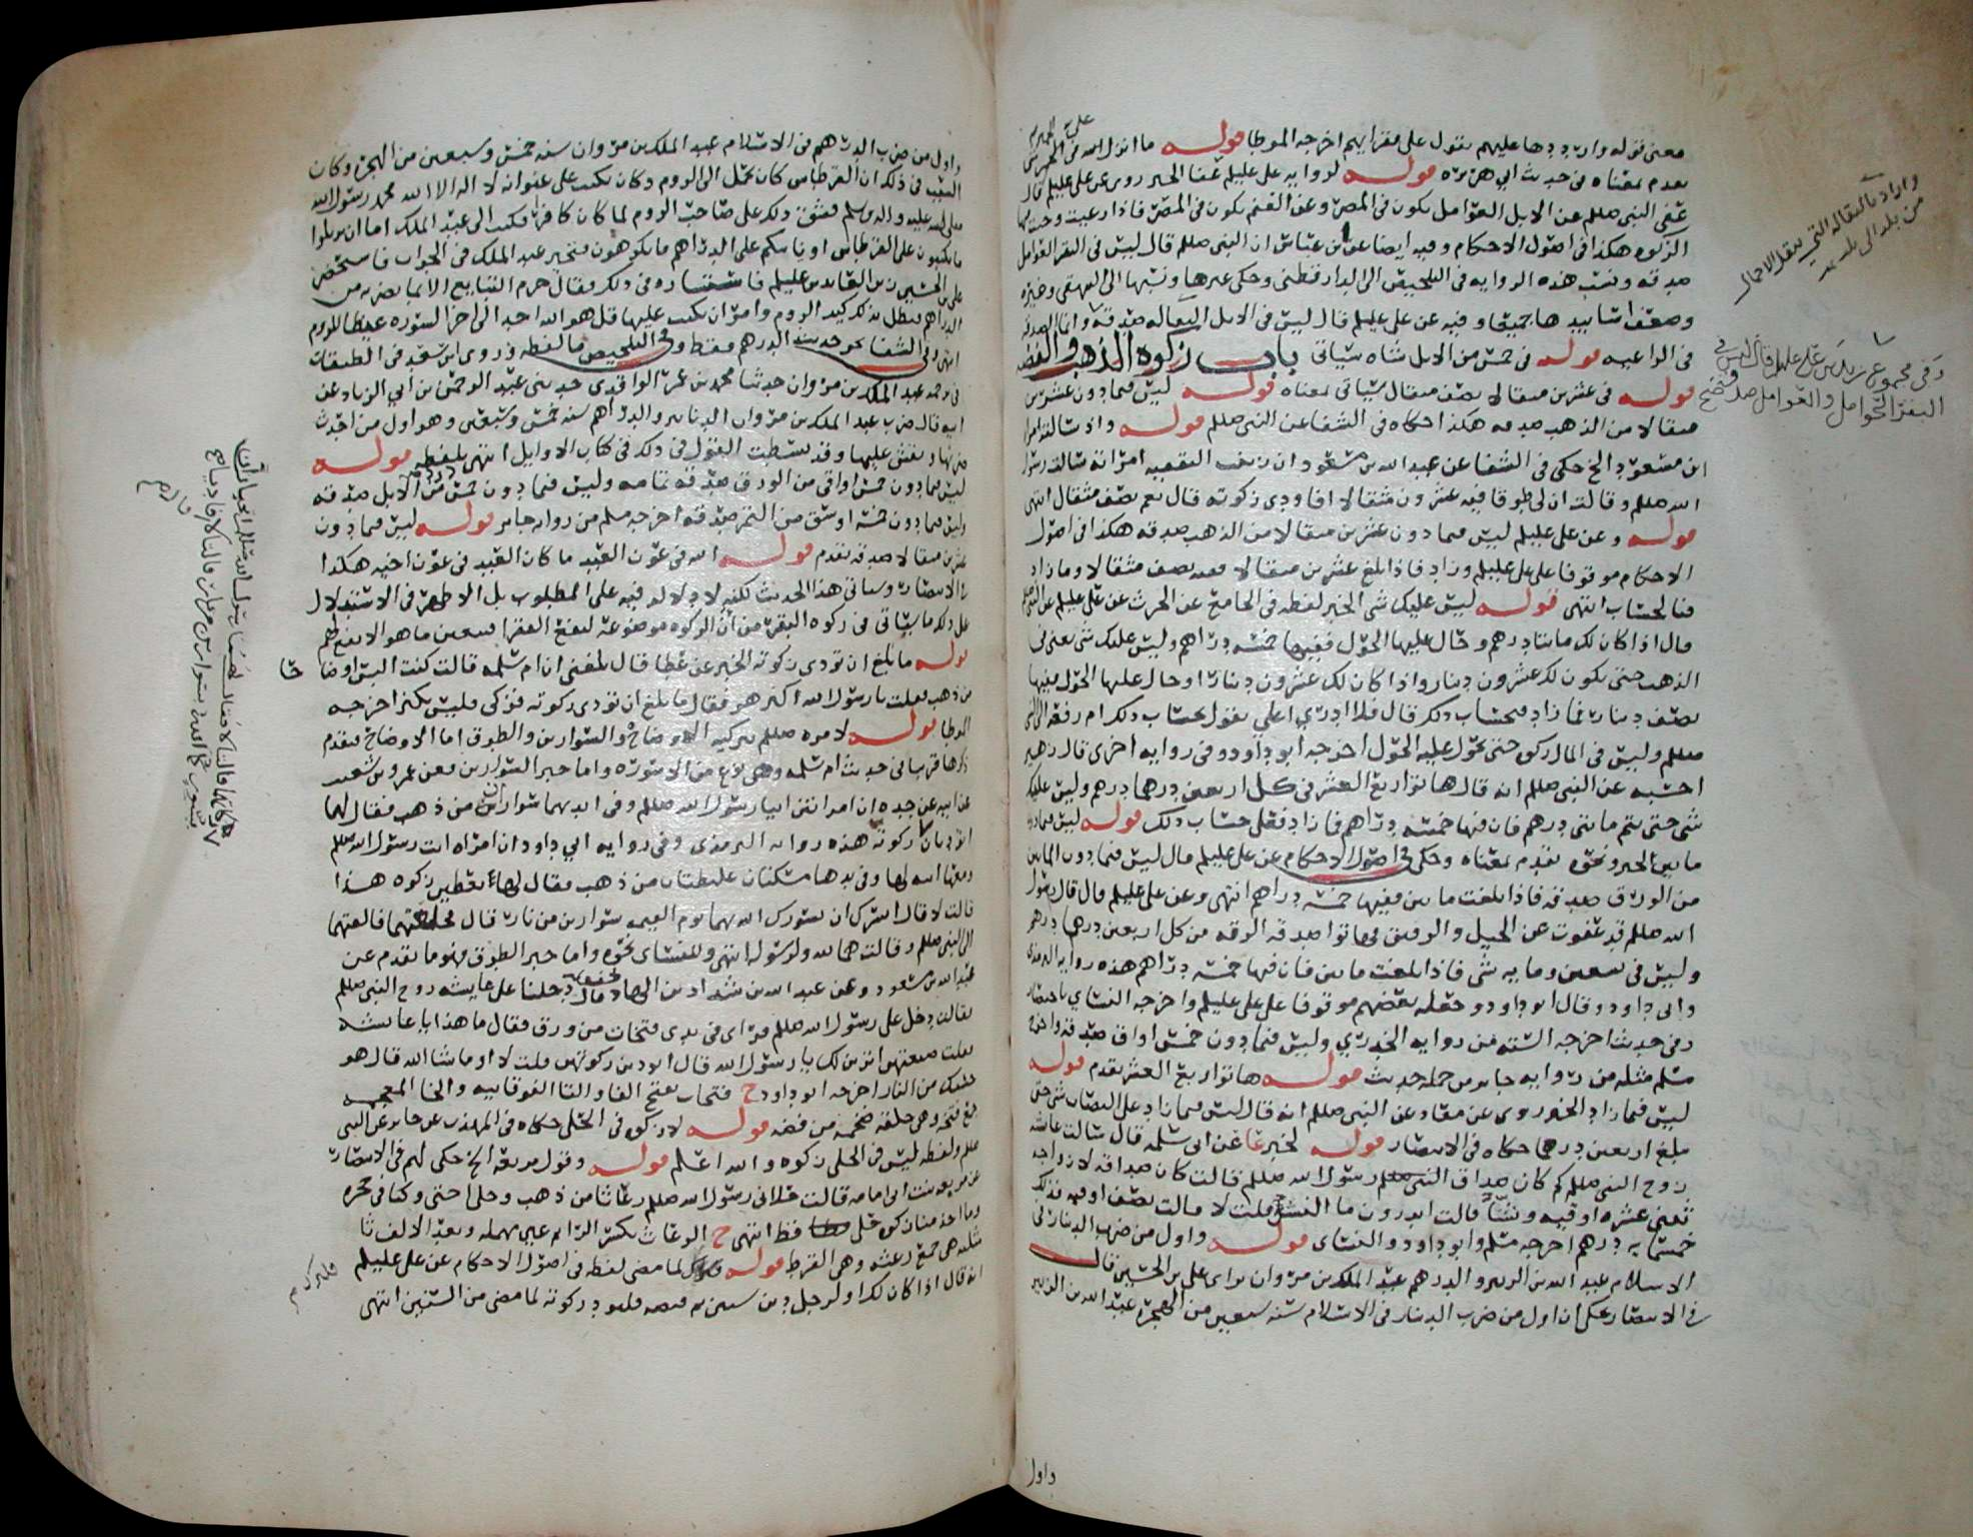 معنى قوله واردددها عليهم بقول على فقرائهم اخرجه الموطا قوله ما انزل الله في الحمر شي
تقدم بمعناه في حديث ابي هريرة قوله لروايه علي عليلم عفا الخبر روى عن علي عليلم قال
عفى النبي صللم عن الابل العوامل تكون في المصر وعن الغنم تكون في المصر فاذا رعيت وجبت فيها
الزكوه هكذا في اصول الاحكام وفيه ايضا عن ابن عباس ان النبي صللم قال ليس في البقر العوامل
صدقه ونسب هذه الروايه في التلخيص الى الدارقطني وحكى غيرها ونسبها الى البيهقي وغيره
وضعف اسانيدها جميعا وفيه عن علي عليلم قال ليس في الابل النقاله صدقه وانما الصدقه
في الراعيه قوله في خمس من الابل شاه سياتي باب زكوه الذهب والفضه
قوله في عشرين مثقالا نصف مثقال سياتي معناه قوله ليس فيما دون عشرين
مثقالا من الذهب صدقه هكذا احكاه في الشفا عن النبي صللم قوله واذ سالته امراه
ابن مسعود الخ حكى في الشفا عن عبدالله بن مسعود ان زينب الثقفيه امراته سالت رسول
الله صللم وقالت ان لي طوقا فيه عشرون مثقالا افاودي زكوته قال نعم نصف مثقال انتهى
قوله وعن علي عليلم ليس فيما دون عشرين مثقالا من الذهب صدقه هكذا في اصول
الاحكام موقوفا على علي عليلم وزاد فاذا بلغ عشرين مثقالا ففيه نصف مثقالا وما زاد
فبالحساب انتهى قوله ليس عليك شي الخبر لفظه في الجامع عن الحرث عن علي عليلم عن النبي صللم
قال اذا كان لك مائتا درهم وحال عليها الحول ففيها خمسه دراهم وليس عليك شي يعني في
الذهب حتى يكون لك عشرون دينار واذا كان لك عشرون دينارا وحال عليها الحول ففيها
نصف دينار فما زاد فبحساب ذلك قال فلا ادري اعلي يقول بحساب ذلك ام رفعه الى النبي
صللم وليس في المال زكوه حتى يحول عليه الحول اخرجه ابو داود وفي روايه اخرى قال زهير
احسبه عن النبي صللم انه قال هاتوا ربع العشر في كل اربعين درهما درهم وليس عليكم
شي حتى يتم مائتي درهم فان فيها خمسه دراهم فما زاد فعلى حساب ذلك قوله ليس فيما دون
مائتين الخبر ونحوه تقدم بمعناه وحكى في اصول الاحكام عن علي عليلم قال ليس فيما دون المائتين
من الورق صدقه فاذا بلغت مائتين ففيها خمسه دراهم انتهى وعن علي عليلم قال قال رسول
الله صللم قد عفوت عن الخيل والرقيق فهاتوا صدقه الرقه من كل اربعين درهما درهم
وليس في تسعين ومايه شي فاذا بلغت مائتين فان فيها خمسه دراهم هذه روايه الترمذي
وابي داود وقال ابو داود وجعله بعضهم موقوفا على علي عليلم واخرجه النسائي باختصار
وفي حديث اخرجه السته من روايه الخدري وليس فيما دون خمس اواق صدقه واخرج
مسلم مثله من روايه جابر من جمله حديث قوله هاتوا ربع العشر تقدم قوله
ليس فيما زاد الخبر روى عن معاذ عن النبي صللم انه قال ليس فيما زاد على النصاب شي حتى
يبلغ اربعين درهما حكاه في الانتصار قوله لخبر عا عن ابي سلمه قال سالت عائشه
زوج النبي صللم كم كان صداق رسول الله صللم قالت كان صداقه لازواجه
ثنتي عشره اوقيه ونشا قالت اتدرون ما النش قلت لا قالت نصف اوقيه فذلك
خمسمايه درهم اخرجه مسلم وابو داود والنسائي قوله واول من ضرب الدينار في
الاسلام عبد الله بن الزبير والدرهم عبد الملك بن مروان براي علي بن الحسين قال
في الانتصار يحكى ان اول من ضرب الدينار في الاسلام سنه سبعين من الهجره عبد الله بن الزبير
واول
واراد بالنقاله التي تنقل الاحمال
من بلد الى بلد
وفي مجموع زيد بن علي عليلم قال ليس في
البقر الحوامل والعوامل صدقه
واول من ضرب الدراهم في الاسلام عبد الملك بن مروان سنه خمس وسبعين من الهجره وكان
السبب في ذلك ان القرطاس كان يحمل الى الروم وكان يكتب على عنوانه لا اله الا الله محمد رسول الله
صلى الله عليه واله وسلم فشق ذلك على صاحب الروم لما كان كافرا فكتب الى عبد الملك اما ان تزيلوا
ما تكتبون على القرطاس او ياتيكم على الدراهم ما تكرهون فتحير عبد الملك في الجواب فاستحضر
علي بن الحسين زين العابدين عليلم فاستشاره في ذلك فقال حرم التبايع الا بما تضربه من
الدراهم فبطل بذلك كيد الروم وامر ان يكتب عليها قل هو الله احد الى اخر السوره غيظا للروم
انتهى وفي الشفا نحو حديث الدرهم فقط وفي التلخيص ما لفظه وروى ابن سعد في الطبقات
في ترجمه عبد الملك بن مروان حدثنا محمد بن عمر الواقدي حدثني عبد الرحمن بن ابي الزناد عن
ابيه قال ضرب عبد الملك بن مروان الدنانير والدراهم سنه خمس وسبعين وهو اول من احدث
ضربها ونقش عليها وقد بسطت القول في ذلك في كتاب الاوايل انتهى بلفظه قوله
ليس فيما دون خمس اواقي من الورق صدقه تمامه وليس فيما دون خمس ذود من الابل صدقه
وليس فيما دون خمسه اوسق من التمر صدقه اخرجه مسلم من روايه جابر قوله ليس فيما دون
عشرين مثقالا صدقه تقدم قوله الله في عون العبد ما كان العبد في عون اخيه هكذا
في الانتصار وسياتي هذا الحديث لكنه لا دلاله فيه على المطلوب بل الاظهر في الاستدلال
على ذلك ما سياتي في زكوه البقر من ان الزكوه موضوعه لنفع الفقرا فيتعين ما هو الانفع لهم
قوله ما بلغ ان تؤدى زكوته الخبر عن عطا قال بلغني ان ام سلمه قالت كنت البس اوضاحا
من ذهب فقلت يا رسول الله اكنز هو فقال ما بلغ ان تؤدى زكوته فزكي فليس بكنز اخرجه
الموطا قوله لامره صللم بتزكيه الاوضاح والسوارين والطوق اما الاوضاح فتقدم
ذكرها قريبا في حديث ام سلمه وهي نوع من الاسوره واما خبر السوارين فعن عمرو بن شعيب
عن ابيه عن جده ان امراتين اتيا رسول الله صللم وفي ايديهما سواران من ذهب فقال لهما
اتؤديان زكوته هذه روايه الترمذي وفي روايه ابي داود ان امراه اتت رسول الله صللم
ومعها ابنه لها وفي يدها مسكتان غليظتان من ذهب فقال لها اتعطين زكوه هذا
قالت لا قال ايسرك ان يسورك الله بهما يوم القيمه سوارين من نار قال فخلعتهما فالقتهما
الى النبي صللم وقالت هما لله ولرسوله انتهى وللنسائي نحوه واما خبر الطوق فهو ما تقدم عن
عبد الله بن مسعود وعن عبد الله بن شداد بن الهاد قال دخلنا على عايشه زوج النبي صللم
فقالت دخل علي رسول الله صللم فراى في يدي فتخات من ورق فقال ما هذا يا عائشه
فقلت صنعتهن اتزين لك يا رسول الله قال اتؤدين زكوتهن قلت لا او ما شا الله قال هو
حسبك من النار اخرجه ابو داود ح فتخات بفتح الفا والتا الفوقانيه والخا المعجمه
جمع فتخه وهي حلقه ضخمه من فضه قوله لا زكوه في الحلي حكاه في المهذب عن جابر عن النبي
صللم ولفظه ليس في الحلي زكوه والله اعلم قوله وقول مريعه الخ حكى لهم في الانتصار
عن مريعه بنت ابي امامه قالت حلاني رسول الله صللم رعاثا من ذهب وحلى اختي وكنا في حجره
وما اخذ منا زكوه حلي قط انتهى ح الرعاث بكسر الراء ثم عين مهمله وبعد الالف ثا
مثلثه هي جمع رعثه وهي القرط قوله لما مضى لفظه في اصول الاحكام عن علي عليلم
انه قال اذا كان لك او لرجل دين سنين ثم قبضه فليؤد زكوته لما مضى من السنين انتهى